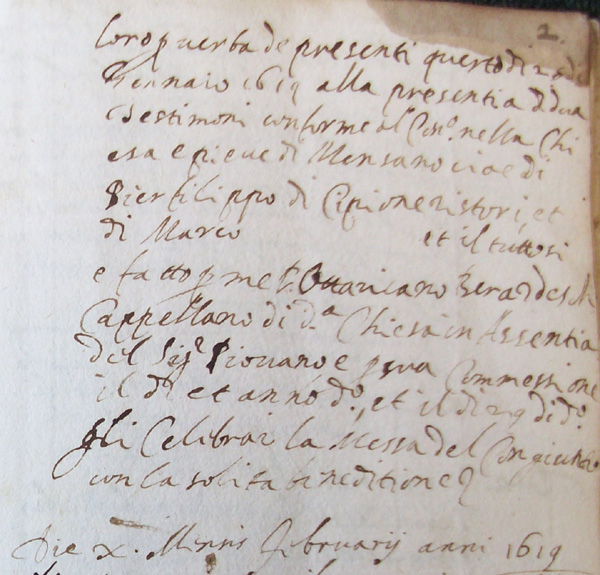 2.
loro p verba de presenti questo dì 20 di
Gennaio 1619 alla presentia di dua
Testimoni conforme al Con.º nella Chi
esa e pieve di Mensano cioe di
Pierfilippo di Cipione ristori, et
di Marco et il tutto si
e fatto p me P. Ottaviano
Cappellano di d.ª Chiesa in Assentia
del Sig.r Piovano e p sua Commessione
il dì et anno d.º, et il dì 29 di d.º
gli Celebrai la Messa del Congiunto
con la solita beneditione
Die X. Mensis februarij anni 1619